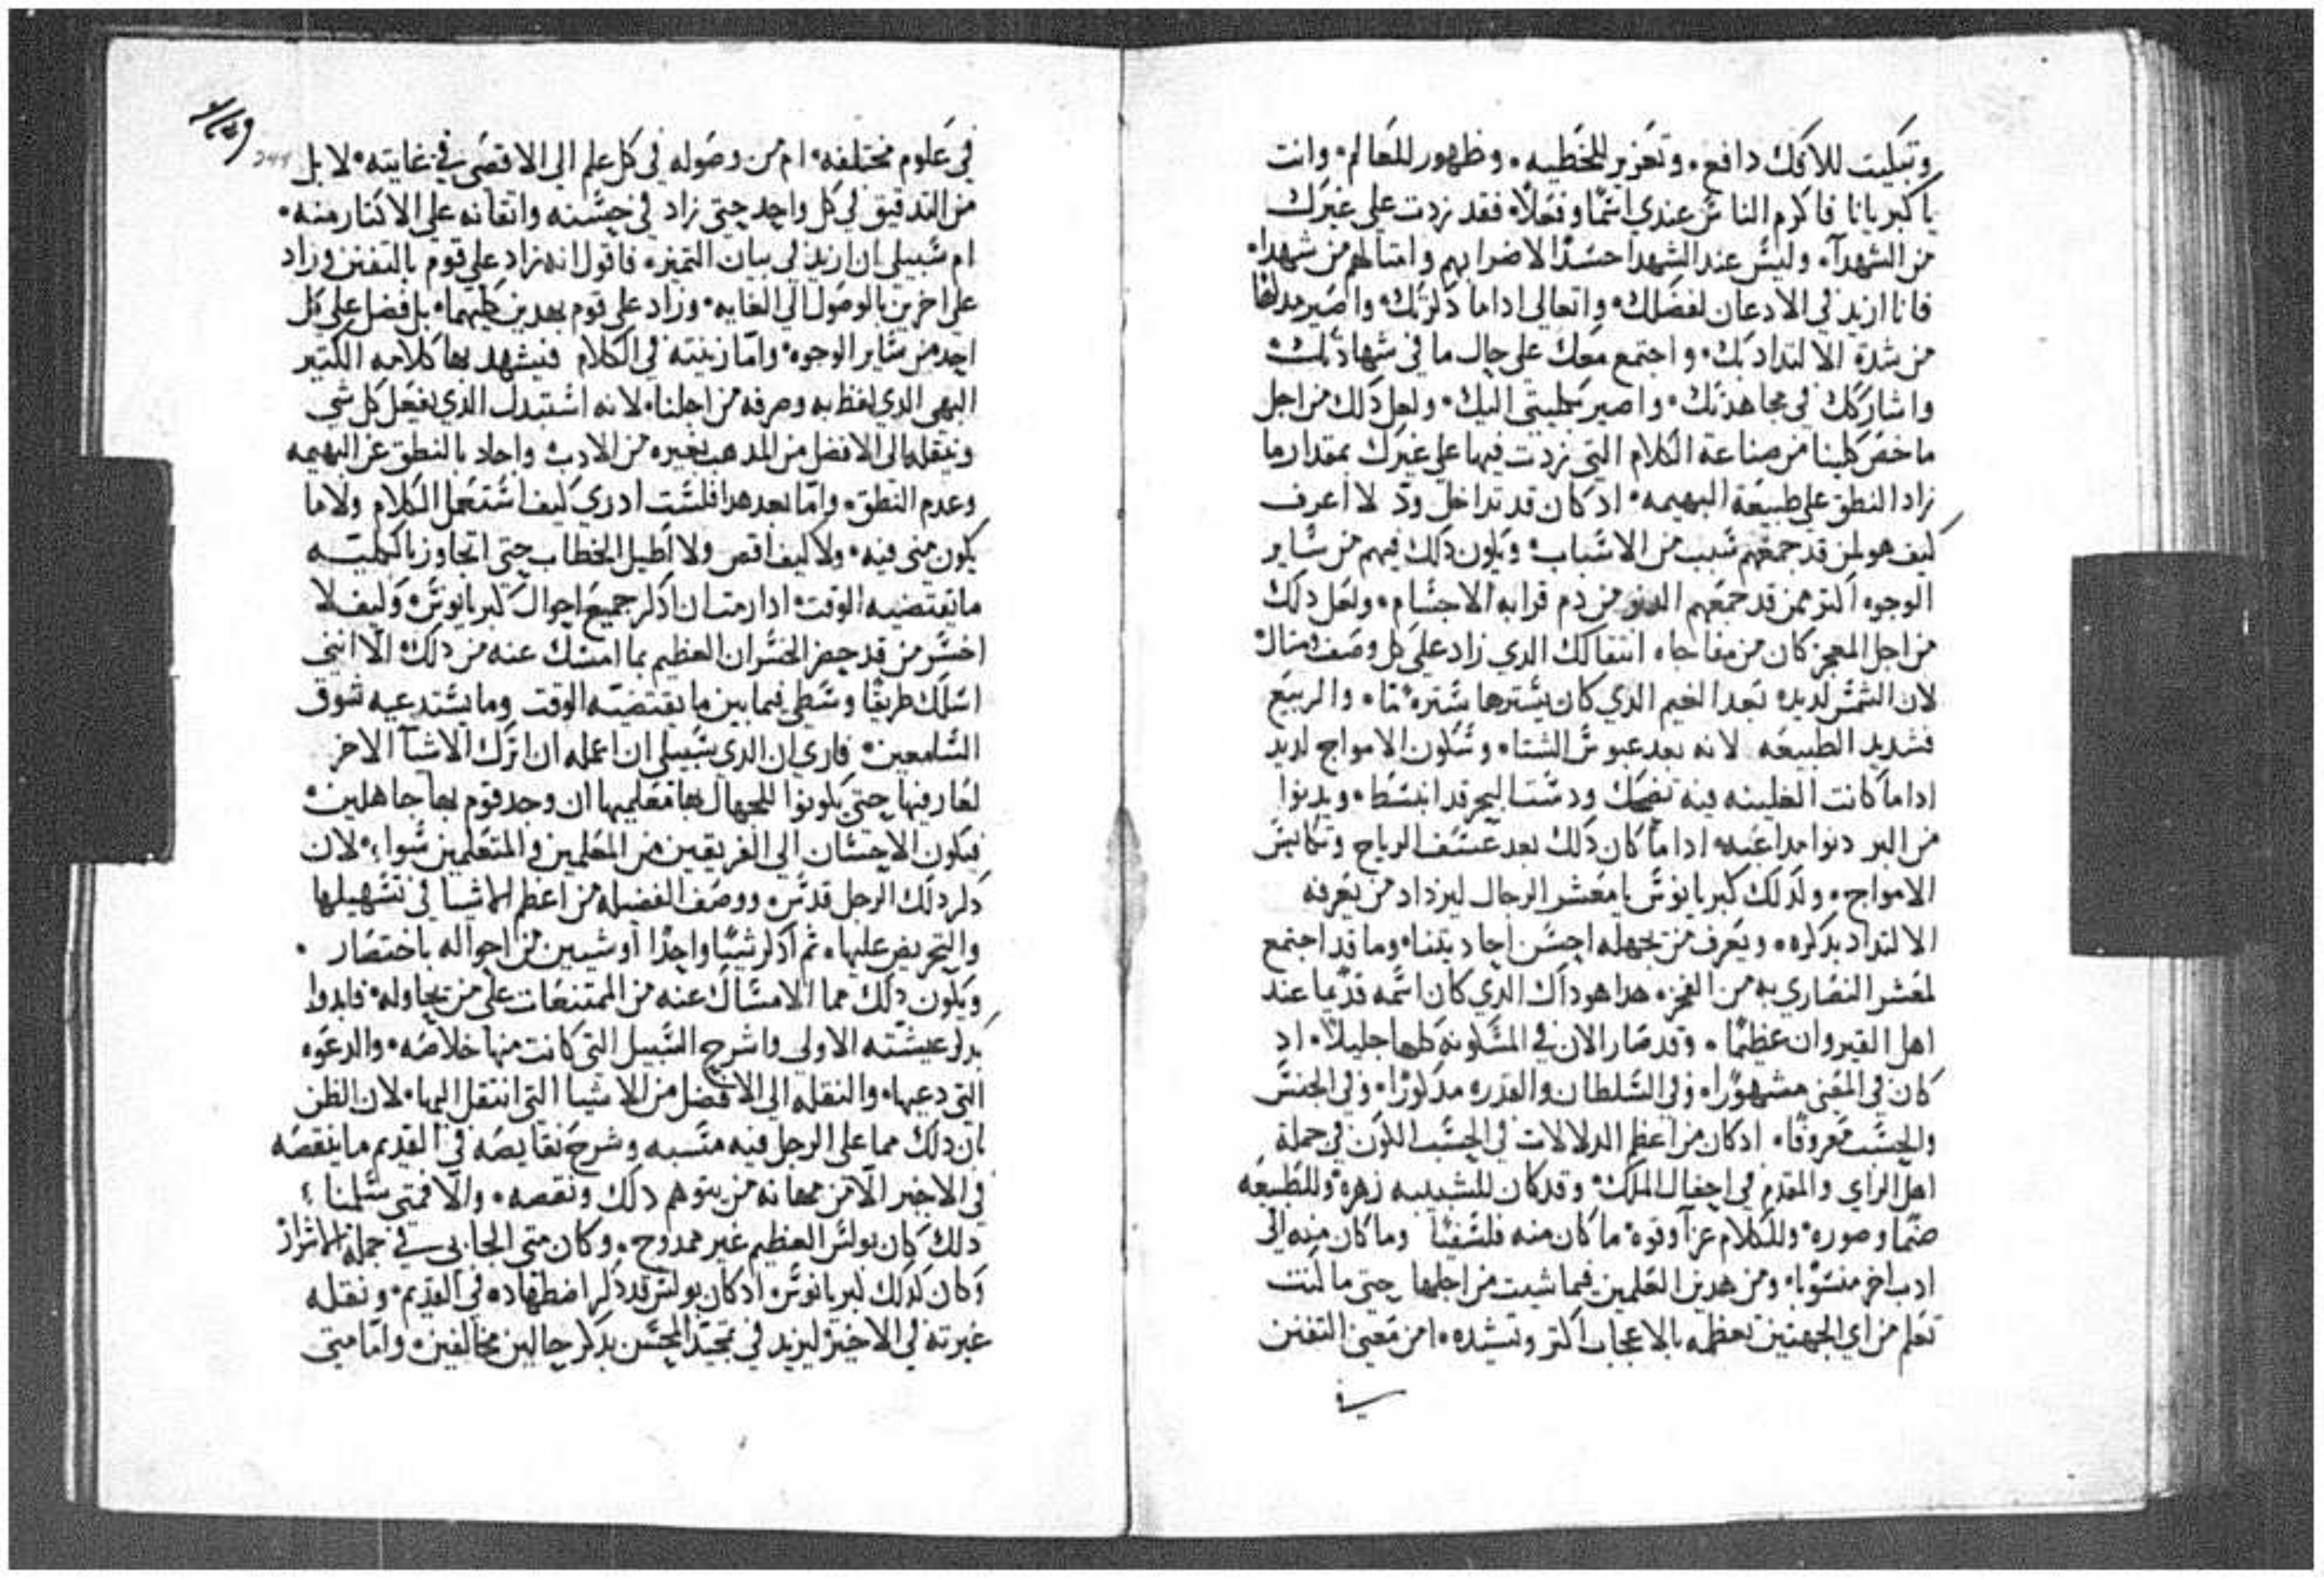 وتبكيت للافك دافع. وتعزير للخطيه. وظهور للمعالم. وانت
يا كبريانا فاكرم الناس عندي اسمًا وفعلًا. فقد زدت علي غيرك
من الشهدآ. وليس عند الشهدا حسدًا لاضرابهم وامثالهم من شهدا.
فانا ازيد في الادعان لفضلك. واتعالي اداما دكرتك. واصير
من شدة الالتداد بك. واجتمع معك علي حال ما في شهادتك.
واشاركك في مجاهدتك. واصير بكليتي اليك. ولعل دلك من اجل
ما خص كلينا من صناعة الكلام التي زدت فيها علي غيرك بمقدار ما
زاد النطق علي طبيعة البهيمه. اد كان قد تداخل ود لا اعرف
كيف هو لمن قد جمعهم سبب من الاسباب. ويكون دلك فيهم من ساير
الوجوه اكتر ممن قد جمعهم من دم قرابه الاجسام. ولعل دلك
من اجل المعجز كان من مفاجاه انتقالك الدي زاد علي كل وصف ومثال
لان الشمس لديده بعد الغيم الدي كان يسترها ستره ما. والربيع
فشديد الطبيعه لانه بعد عبوس الشتا. وسكون الامواج لديد
اداما كانت الغلينه فيه تضحك ودست البحر قد انبسط. ويدنوا
من البر دنوا اداما كان دلك بعد عسف الرياح وتكابس
الامواج. ولدلك كبريانوس يا معشر الرجال ليزداد من يعرفه
الالتداد بدكره. ويعرف من يجهله احسن احاديتنا. وما قد اجتمع
لمعشر النصاري به من الفخر. هدا هو داك الدي كان اسمه قديما عند
اهل القيروان عظيمًا. وقد صار الان في المسكونه كلها جليلًا. اد
كان في الغني مشهورًا. وفي السلطان والقدره مدكورًا. وفي الجنس
والحسب معروفًا. اد كان من اعظم الدلالات في الحسب الكون في جملة
اهل الراي والمقدم في احفال الملك. وقد كان للشبيبه زهره. وللطبيعه
صنما وصوره. وللكلام عزآ وقوه. ما كان منه فلسفيًا وما كان منه الي
ادب اخر منسوبًا. ومن هدين العلمين فيما شيت من اجلها حتي ما كنت
تعلم من اي الجهتين تعظمه بالاعجاب اكتر وتشيده. امن معني التفنن
في
في علوم مختلفه. ام من وصوله في كل علم الي الاقصي في غايته. لا بل
من التدقيق في كل واحد حتي زاد في حسنه واتقانه علي الاكثار منه.
ام سبيلي ان ازيد في بيان التميز. فاقول انه زاد علي قوم بالتفنن وزاد
علي اخرين بالوصول الي الغايه. وزاد علي قوم بهدين كليهما. بل فضل علي كل
احد من ساير الوجوه. واما زينته في الكلام فيشهد بها كلامه الكتير
البهي الدي لفظ به وصرفه من اجلنا. لانه استبدل الدي يفعل كل شي
وينقله الي الافضل من المدهب بغيره من الادب. واحاد بالنطق عن البهيمه
وعدم النطق. واما بعد هدا فلست ادري كيف استعمل الكلام ولا ما
يكون مني فيه. ولا كيف اقص ولا اطيل الخطاب حتي اتجاوز بالكليه
ما تقتضيه الوقت. ادا رمت ان ادكر جميع احوال كبريانوس. وكيف لا
اخسر من قد حضر الخسران العظيم بما امسك عنه من دلك. الا انني
اسلك طريقًا وسطي فيما بين ما يقتضيه الوقت وما يستدعيه شوق
السامعين. فاري ان الدي سبيلي ان اعمله ان اترك الاشيآ الاخر
لعارفيها حتي يكونوا للجهال بها معلميها ان وجد قوم بها جاهلين.
فيكون الاحسان الي الفريقين من المعلمين والمتعلمين سوا. لان
دكر دلك الرجل قدس. ووصف الفضيله من اعظم الاشيا في تسهيلها
والتحريض عليها. ثم ادكر شيًا واحدًا او شيين من احواله باختصار.
ويكون دلك مما الامساك عنه من الممتنعات علي من يحاوله. فابدوا
بدكر عيشته الاولي واشرح السبيل التي كانت منها خلاصه. والدعوه
التي دعيها. والنقله الي الافضل من الاشيا التي انتقل اليها. لان الظن
بان دلك مما علي الرجل فيه منسبه وشرح نقايصه في القديم ما ينقصه
في الاخير الا من مهانه من يتوهم دلك ونقصه. والا فمتي سلمنا
دلك كان بولس العظيم غير ممدوح. وكان متي الجابي في جملة الاشرار
وكان كدلك كبريانوس. اد كان بولس قد دكر اضطهاده في القديم. ونقله
غيرته في الاخير ليزيد في تمجيد المحسن بدكر حالين مخالفين. واما متي